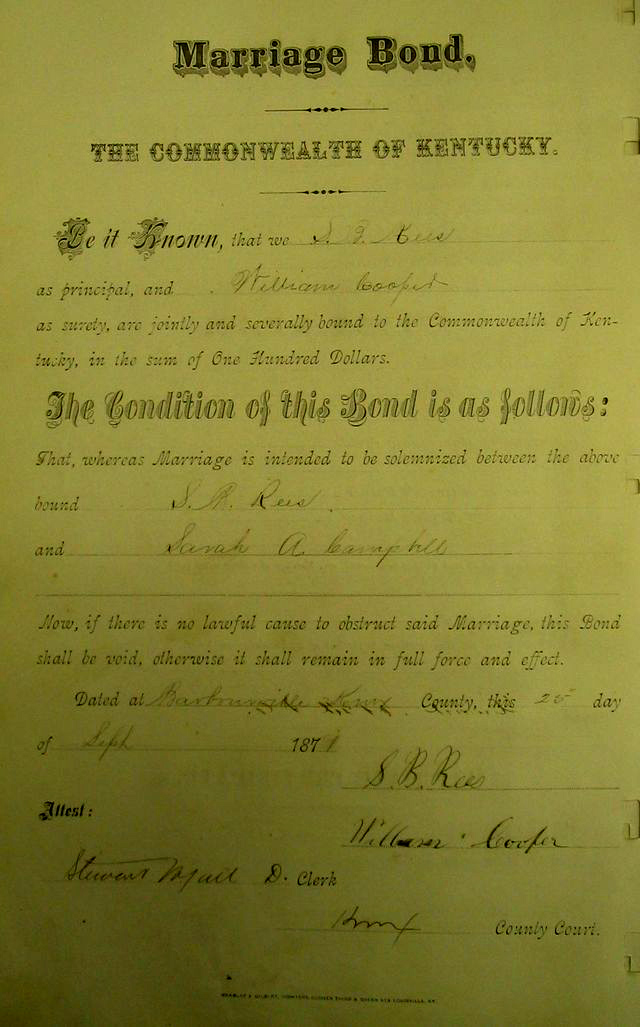 Marriage Bond.
THE COMMONWEALTH OF KENTUCKY.
Be it Known, that we S. B. Rees
as principal, and William Cooper
as surety, are jointly and severally bound to the Commonwealth of Ken-
tucky, in the sum of One Hundred Dollars.
The Condition of this Bond is as follows:
That, whereas Marriage is intended to be solemnized between the above
bound S. B. Rees.
and Sarah A Campbell
Now, if there is no lawful cause to obstruct said Marriage, this Bond
shall be void, otherwise it shall remain in full force and effect.
Dated at Barbourville Knox County, this 25 day
of Sept 187
S. B. Rees
Attest:
William Cooper
Stewart D. Clerk
Knox County Court.
BRADLEY & GILBERT, CORNER THIRD & GREEN STS LOUISVILLE, KY.